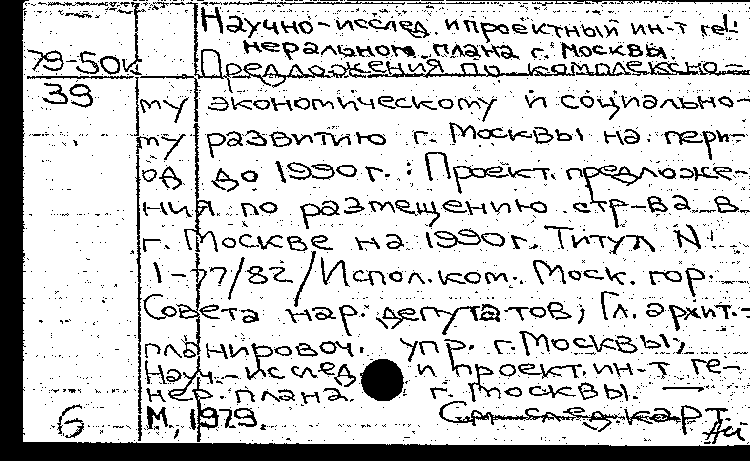 Научно-исслед. и проектный ин-т ге-
нерального плана г. Москвы.
79-50к Предложения по комплексно-
39 му экономическому и социально-
му развитию г. Москвы на пери-
од до 1990 г. : Проект. предложе-
ния по размещению стр-ва в
г. Москве на 1990 г. Титул N
1-77/82 / Испол. ком. Моск. гор.
Совета нар. депутатов; Гл. архит.-
планировоч. упр. г. Москвы;
Науч.-исслед. и проект. ин-т ге-
нер. плана г. Москвы. —
6 М., 1979. См. след. карт.